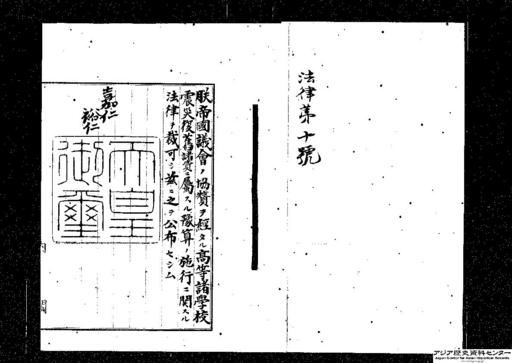 法律第十號
朕帝國議會ノ協贊ヲ經タル高等諸學校
震災復舊諸費ニ屬スル豫算ノ施行ニ關スル
法律ヲ裁可シ茲ニ之ヲ公布セシム
嘉仁
裕仁
天皇
御璽
アジア歴史資料センター
Japan Center for Asian Historical Records